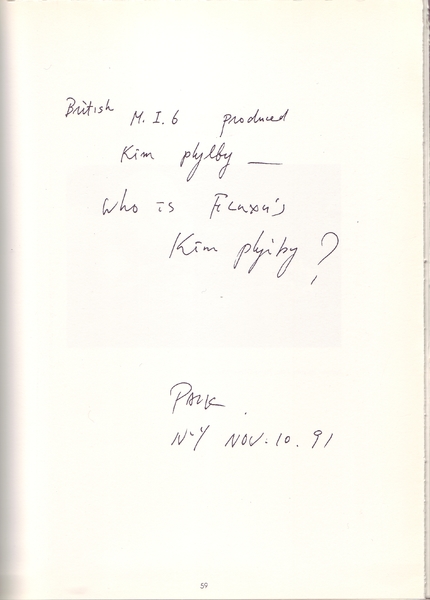 British M.I.6 produced
Kim phylby —
Who is Fluxus's
Kim phylby ?
PAIK .
N.Y NOV. 10. 91
59